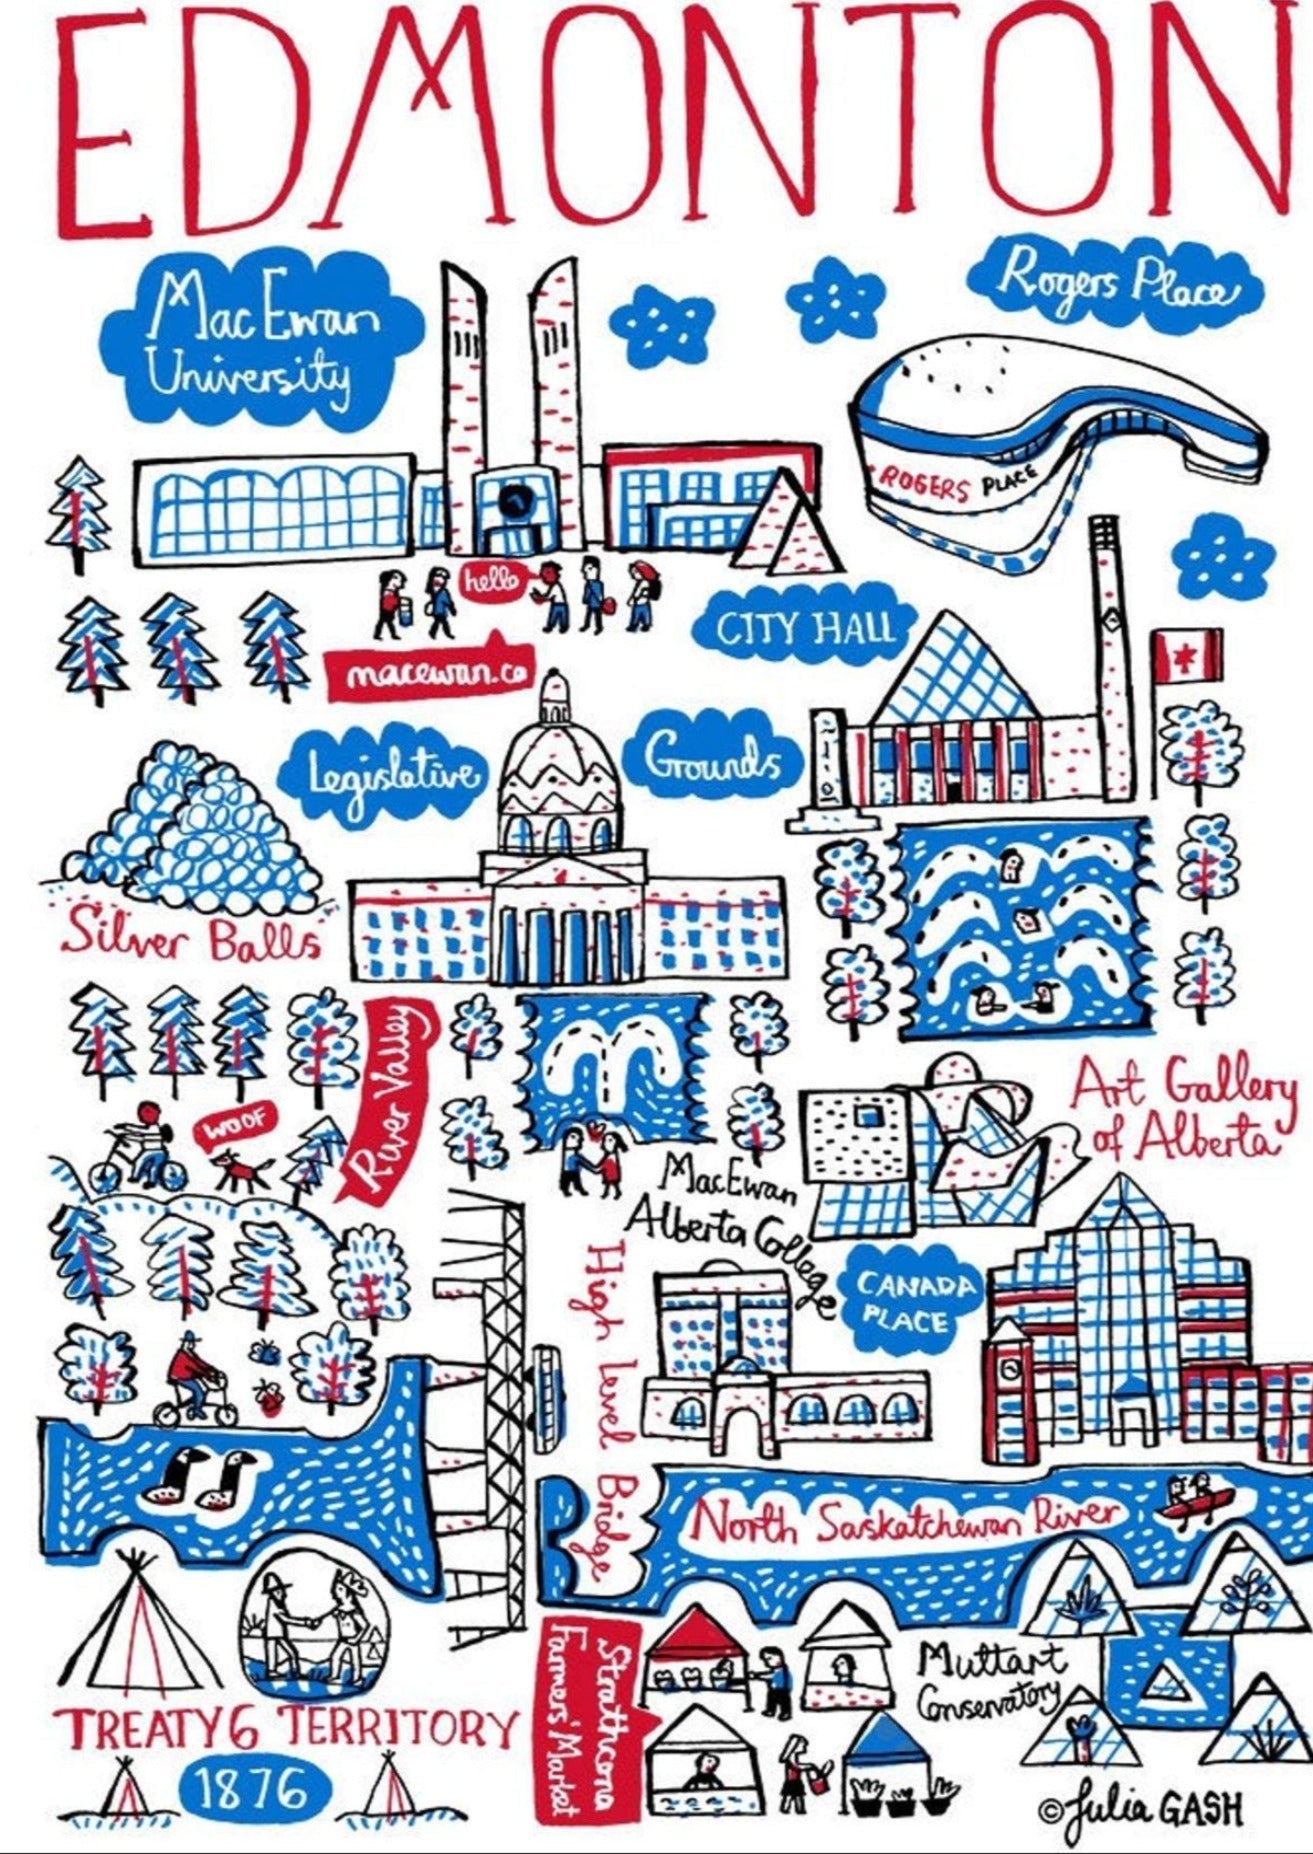 EDMONTON
MacEwan
University
Rogers Place
ROGERS PLACE
hello
CITY HALL
macewan.ca
Legislative
Grounds
Silver Balls
River Valley
WOOF
Art Gallery
of Alberta
MacEwan
Alberta College
CANADA
PLACE
High Level Bridge
North Saskatchewan River
TREATY 6 TERRITORY
1876
Strathcona
Farmers' Market
Muttart
Conservatory
© Julia GASH